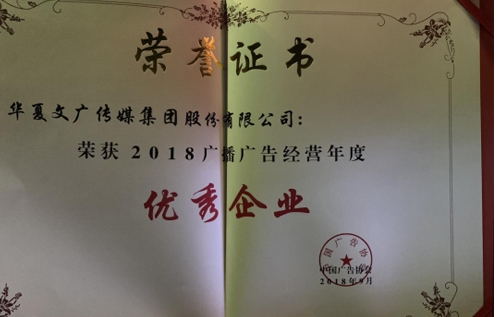 荣誉证书
华夏文广传媒集团股份有限公司：
荣获2018广播广告经营年度
优秀企业
中国广告协会
中国广告协会
2018年9月